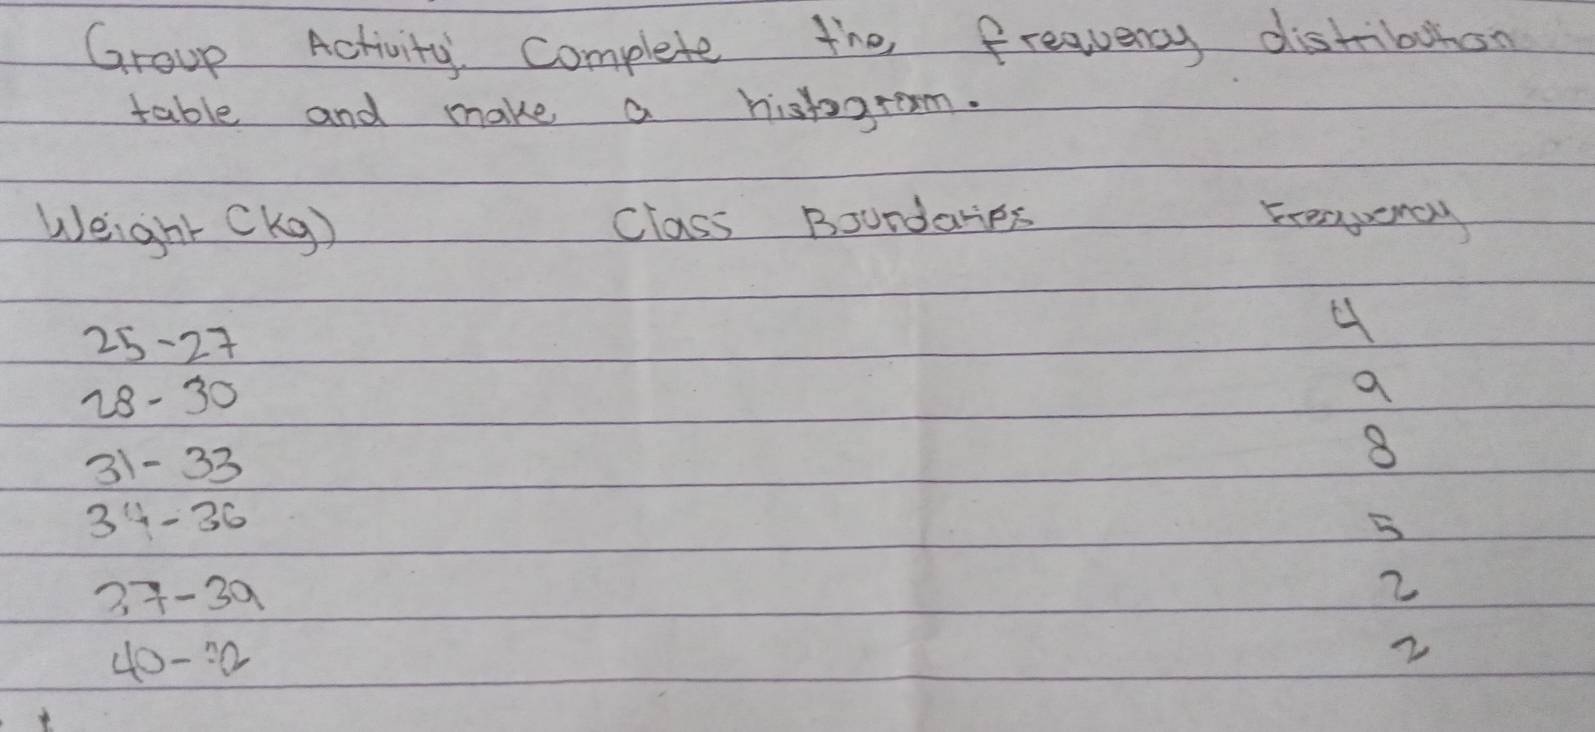 Group Activity. Complete the frequency distribution
table and make a histogram.
Weight (kg) Class Boundaries Frequency
25-27 4
28-30 9
31-33 8
34-36 5
37-39 2
40- 2